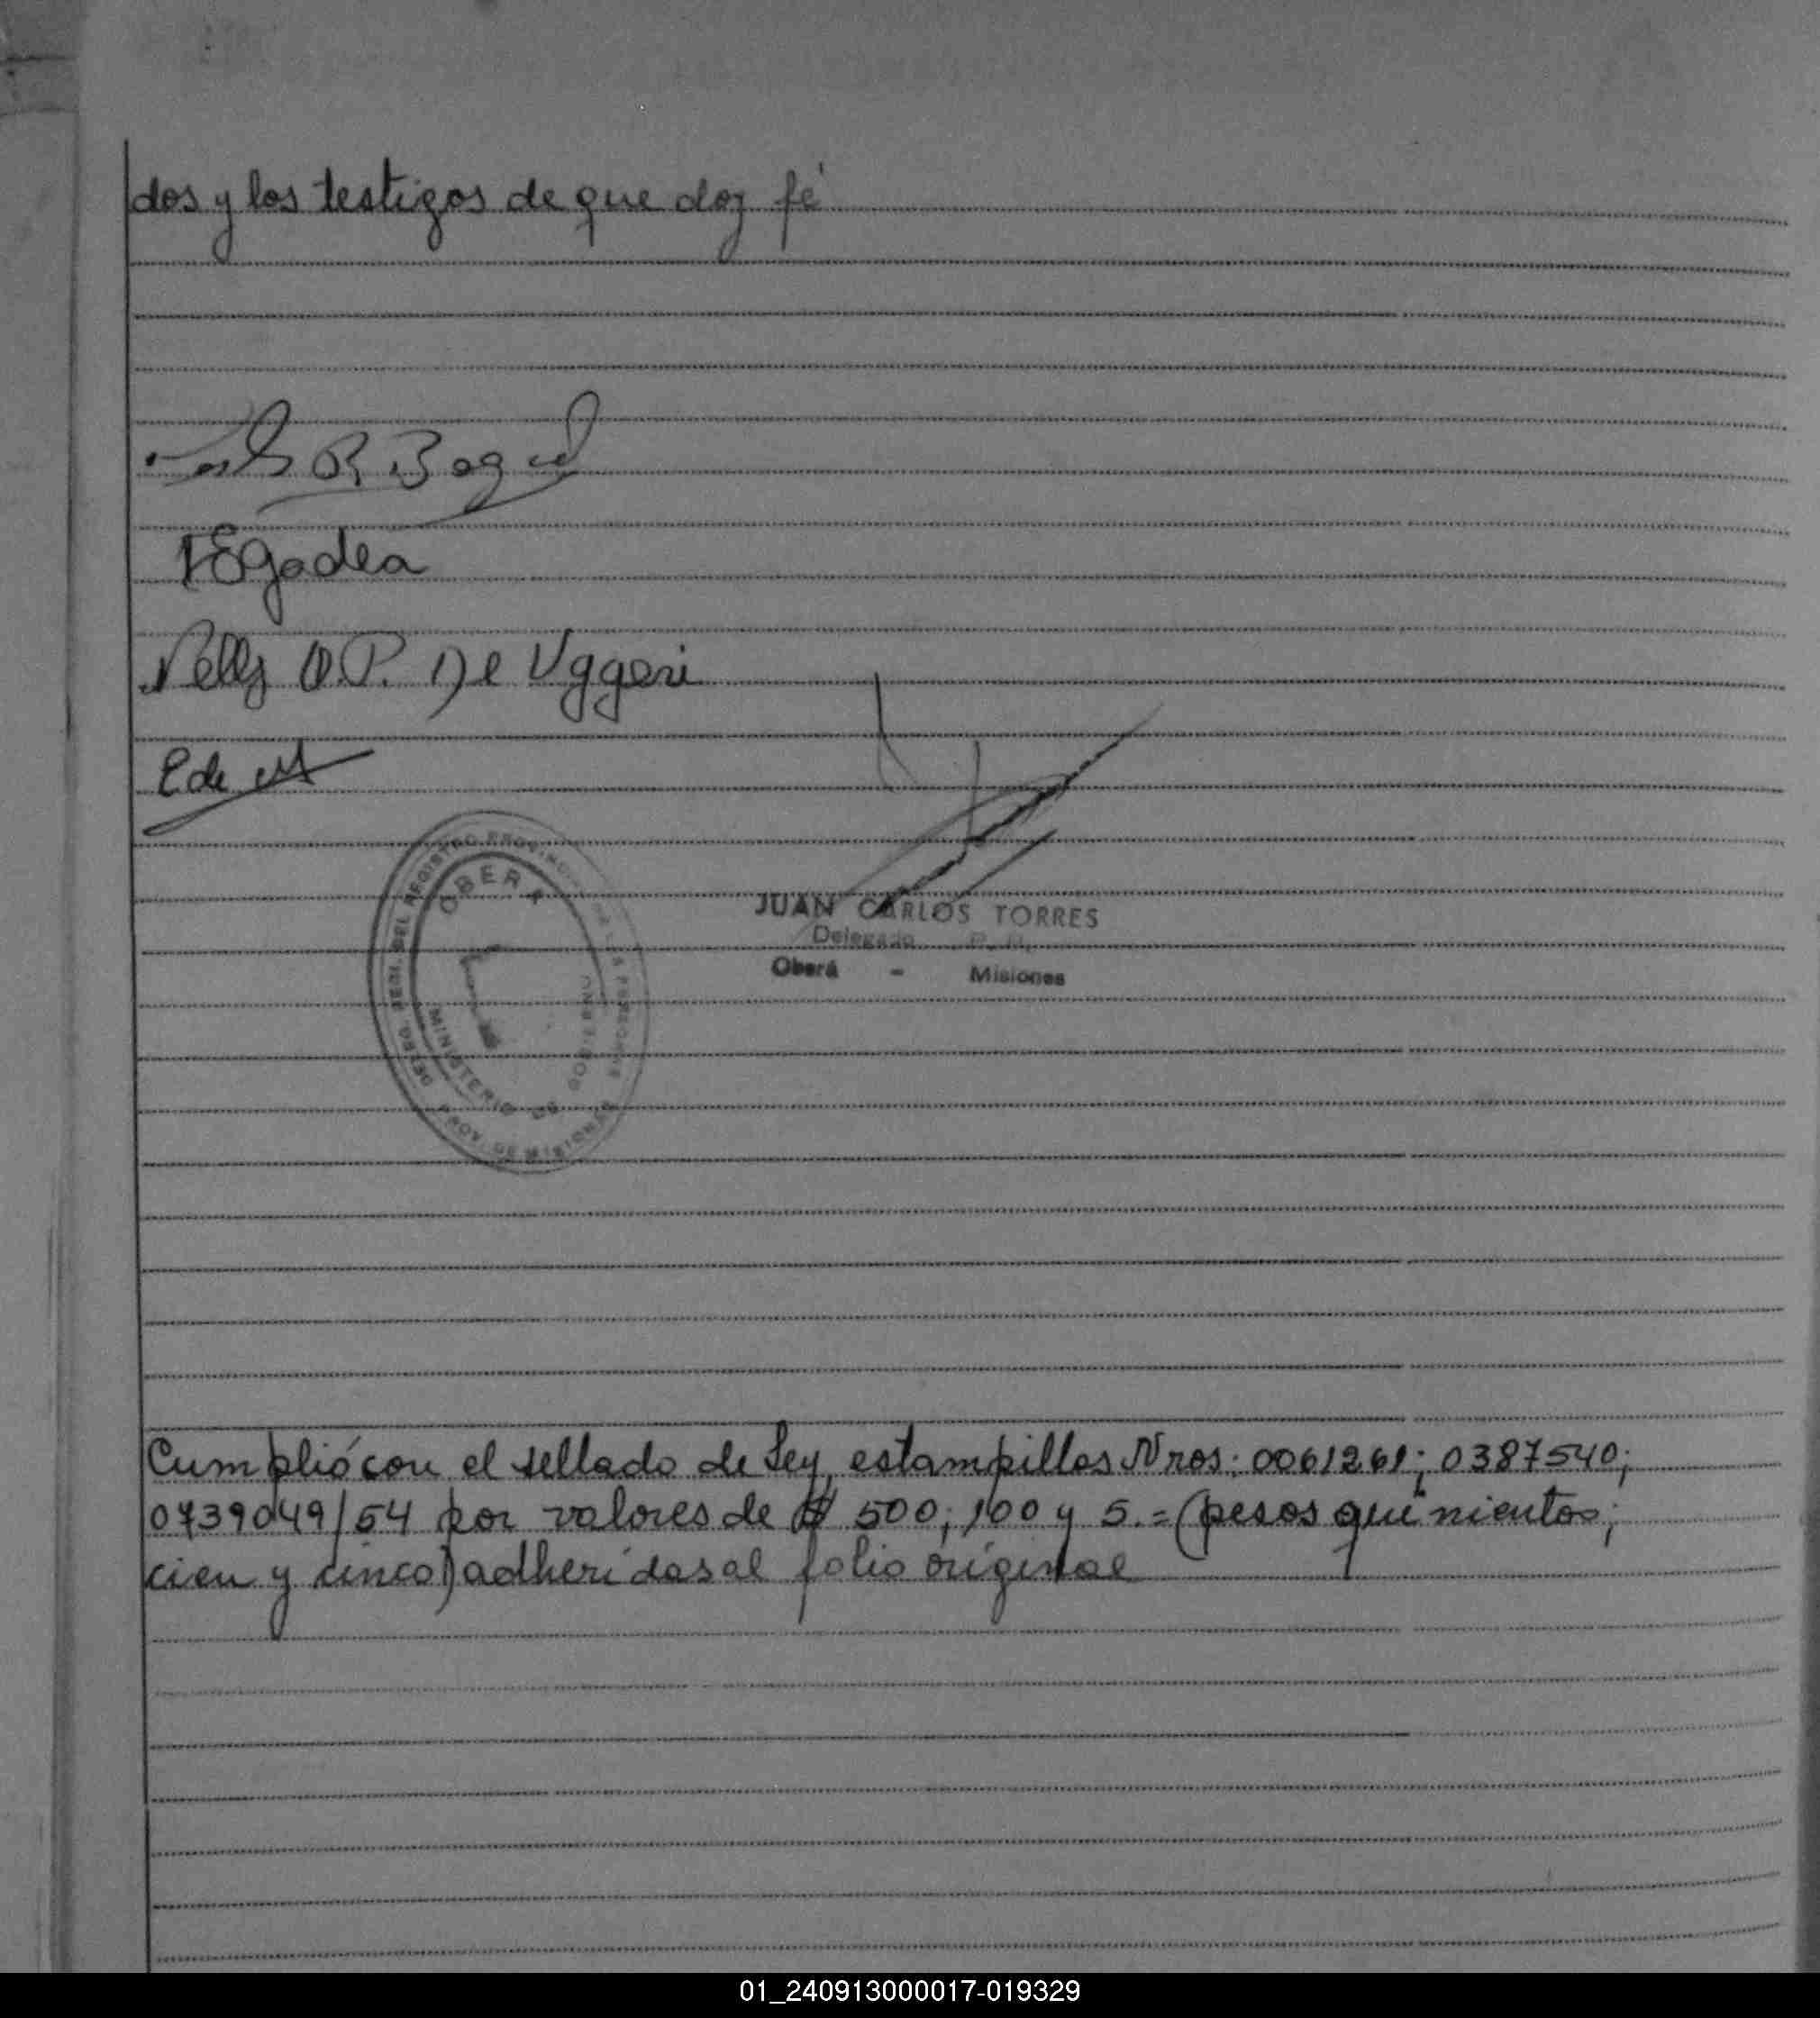 dos y los testigos de que doy fé
R. Bogad
Egadea
Nelly O.P. De Uggeri
Ede
DEL REGISTRO PROVINCIAL DE LAS PERSONAS
OBERA
MINISTERIO DE GOBIERNO
PROV. DE MISIONES
JUAN CARLOS TORRES
Delegado R.P.
Oberá - Misiones
Cumplió con el sellado de Ley, estampillas Nros: 0061261; 0387540;
0739049/54 por valores de $ 500; 100 y 5.= (pesos quinientos;
cien y cinco) adheridas al folio original
01_240913000017-019329